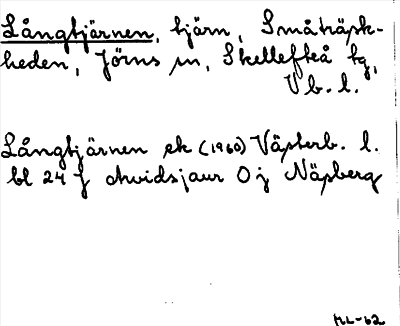 Långtjärnen, tjärn, Småträsk-
heden, Jörns sn, Skellefteå tg,
Vb. l.
Långtjärnen ek (1960) Västerb. l.
bl 24 f Arvidsjaur O j Näsberg
ML-62